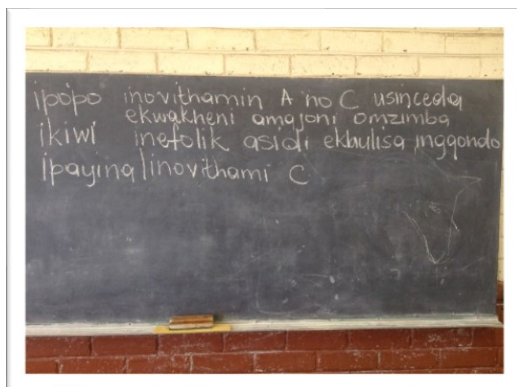 ipopo inovithamin A no C usinceda
ekwakheni amajoni omzimba
ikiwi inefolik asidi ekhulisa ingqondo
ipayina inovithami C